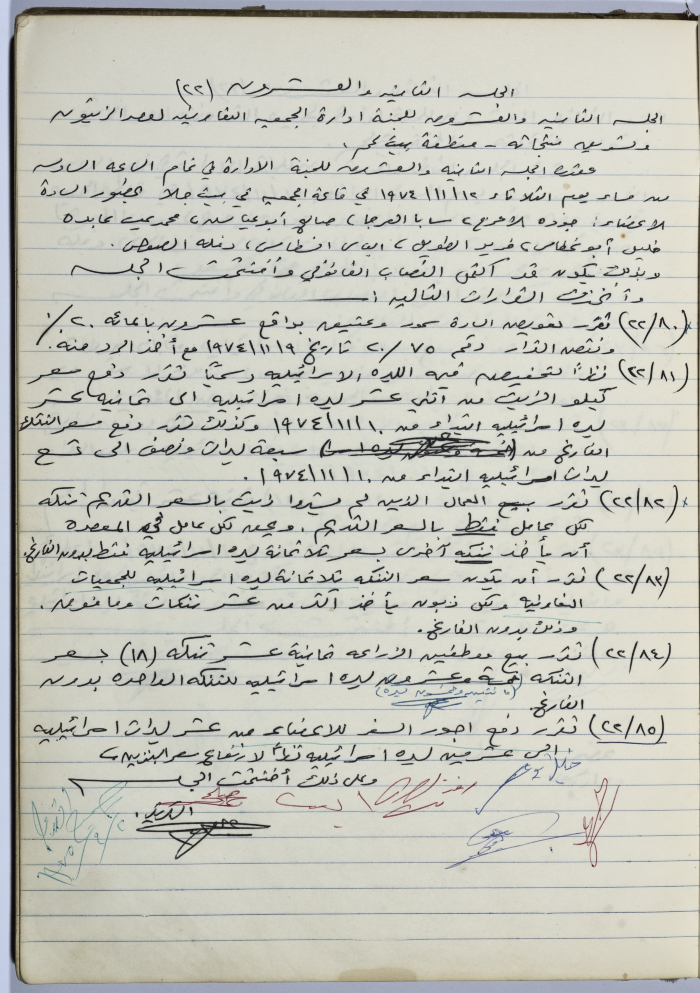 الجلسه الثانيه والعشرون (٢٢)
الجلسه الثانيه والعشرون للجنة ادارة الجمعيه التعاونيه لعصر الزيتون
وتسويق منتجاته - منطقة بيت لحم .
عقدت الجلسه الثانيه والعشرون للجنة الادارة في تمام الساعه السادسه
من مساء يوم الثلاثاء ١٩٧٤/١١/١٢ في قاعة الجمعيه في بيت جالا بحضور السادة
الاعضاء : جوده الاعرج ، سابا العرجا ، صالح أبو عياش ، محمد عابده
خليل أبو غطاس ، فريد الطويل ، الياس افطاس ، دخله الصوص .
وبذلك يكون قد اكتمل النصاب القانوني وأفتتحت الجلسه
وأتخذت القرارات التاليه :ــ
(٢٢/٨٠) تقرر تعويض الساده سمور وعتيق بواقع عشرون بالمائه ٢٠٪
وننقض القرار رقم ٢٠/٧٥ تاريخ ١٩٧٤/١١/٩ مع أخذ الرد منه .
(٢٢/٨١) نظراً لتخفيض قيمة الليره الاسرائيليه رسمياً تقرر رفع سعر
كيلو الزيت من اثني عشر ليره اسرائيليه الى ثمانية عشر
ليره اسرائيليه ابتداء من ١٩٧٤/١١/١٠ وكذلك تقرر رفع سعر التنكه
الفارغه من سبعة ليرات ونصف الى تسع
ليرات اسرائيليه ابتداء من ١٩٧٤/١١/١٠ .
(٢٢/٨٢) تقرر بيع العمال الذين لم يشتروا زيت بالسعر القديم تنكه
لكل عامل فقط بالسعر القديم . ويحق لكل عامل في المعصره
أن يأخذ تنكه أخرى بسعر ثلاثمائة ليره اسرائيليه فقط بدون الفارغ .
(٢٢/٨٣) تقرر أن يكون سعر التنكه ثلاثمائة ليره اسرائيليه للجمعيات
التعاونيه ولكل زبون يأخذ اكثر من عشر تنكات وما فوق .
وذلك بدون الفارغ .
(٢٢/٨٤) تقرر بيع موظفين الزراعه ثمانية عشر تنكه (١٨) بسعر
التنكه خمسة وعشرون ليره اسرائيليه للتنكه الواحده بدون
الفارغ .
(٢٢/٨٥) تقرر دفع اجور السفر للاعضاء من عشر ليرات اسرائيليه
الى عشرين ليره اسرائيليه نظراً لارتفاع سعر البنزين
وعلى ذلك أختتمت الجلسه